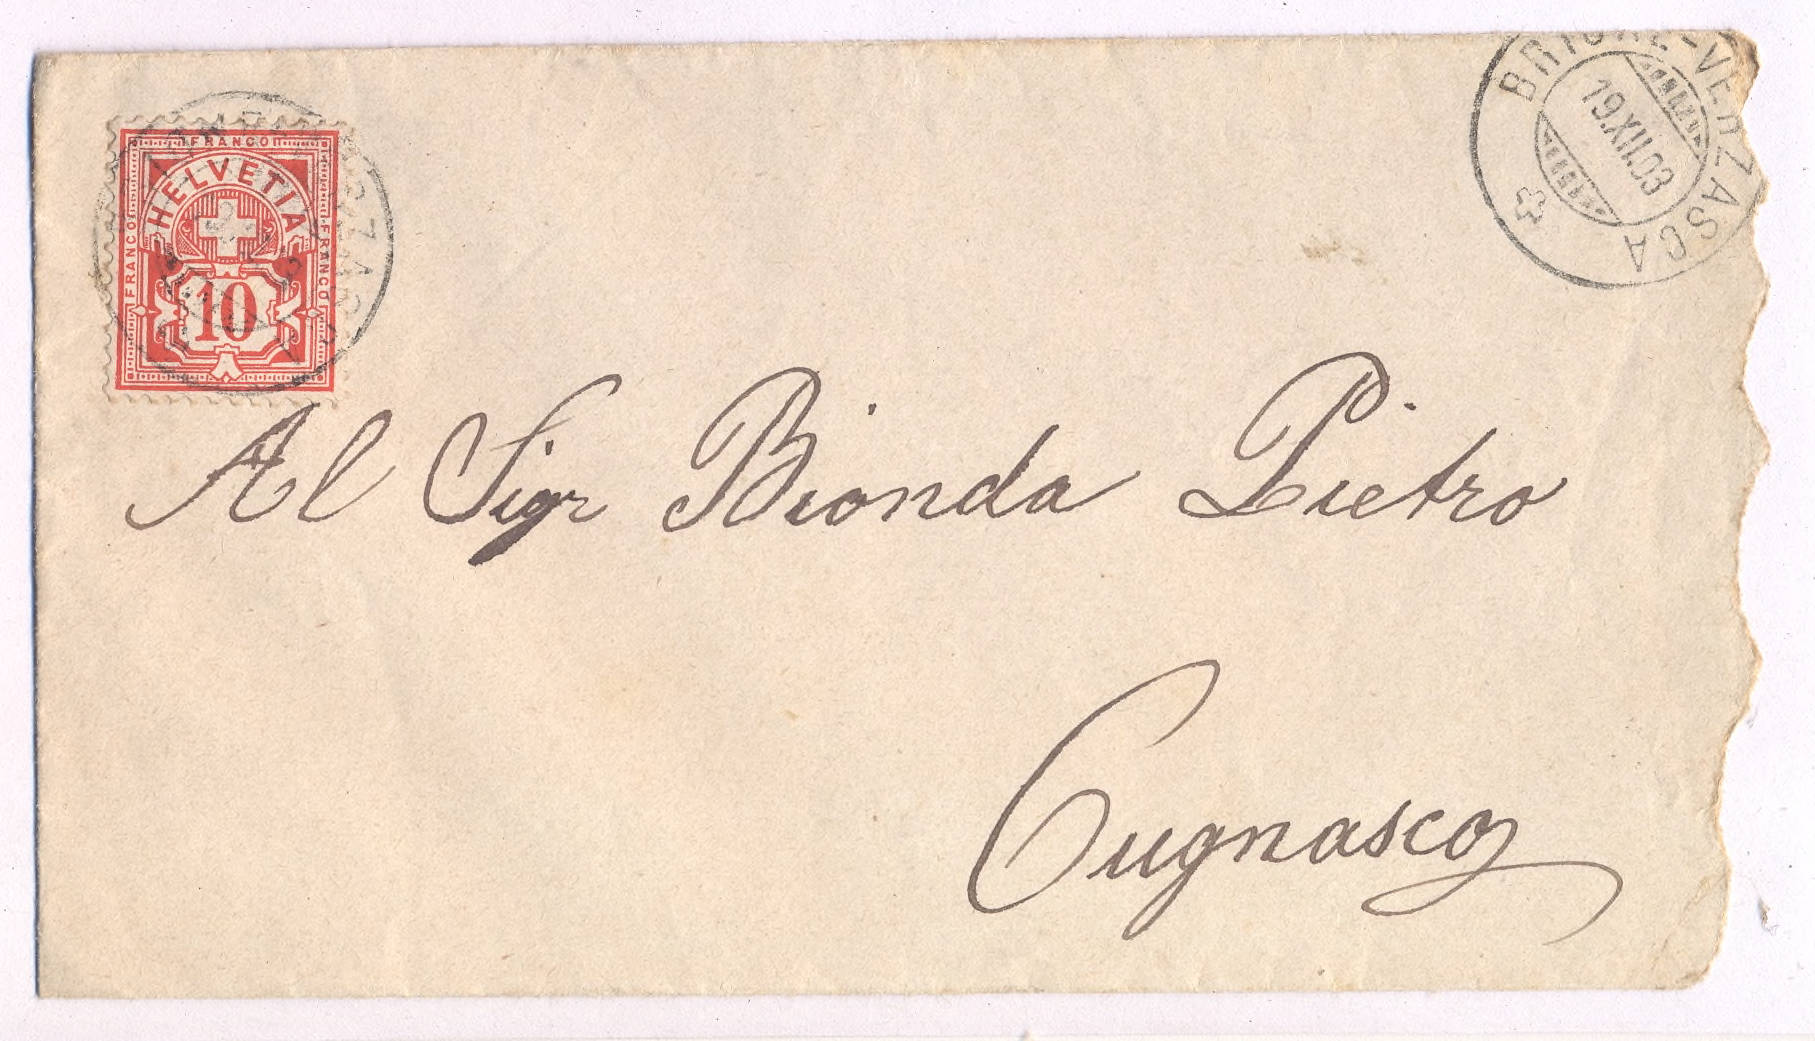 FRANCO
FRANCO
FRANCO
HELVETIA
10
BRIONE-VERZASCA
19.XII.03
Al Sigr Bionda Pietro
Cugnasco